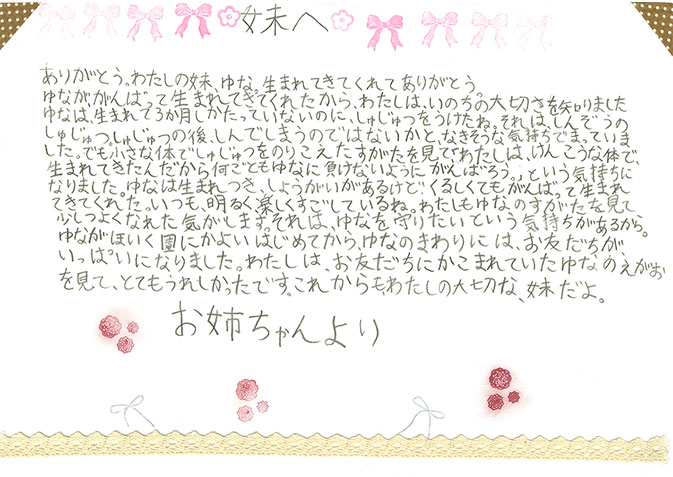 妹へ
ありがとう。わたしの妹、ゆな。生まれてきてくれてありがとう。
ゆなが, がんばって生まれてきてくれたから、わたしは、いのちの大切さを知りました
ゆなは、生まれて3か月しかたっていないのに、しゅじゅつをうけたね。それは、しんぞうの
しゅじゅつ。しゅじゅつの後、しんでしまうのではないかと、なきそうな気持ちでまっていま
した。でも小さな体でしゅじゅつをのりこえたすがたを見て「わたしは、けんこうな体で、
生まれてきたんだから何ごともゆなに負けないようにがんばろう。」という気持ちに
なりました。ゆなは生まれつき、しょうがいがあるけど、くるしくてもがんばって生まれ
てきてくれた。いつも、明るく楽しくすごしているね。わたしもゆなのすがたを見て
少しつよくなれた気がします。それは、ゆなを守りたいという気持ちがあるから。
ゆながほいく園にかよいはじめてから、ゆなのまわりには、お友だちが、
いっぱいになりました。わたしは、お友だちにかこまれていたゆなのえがお
を見て、とてもうれしかったです。これからもわたしの大切な、妹だよ。
お姉ちゃんより